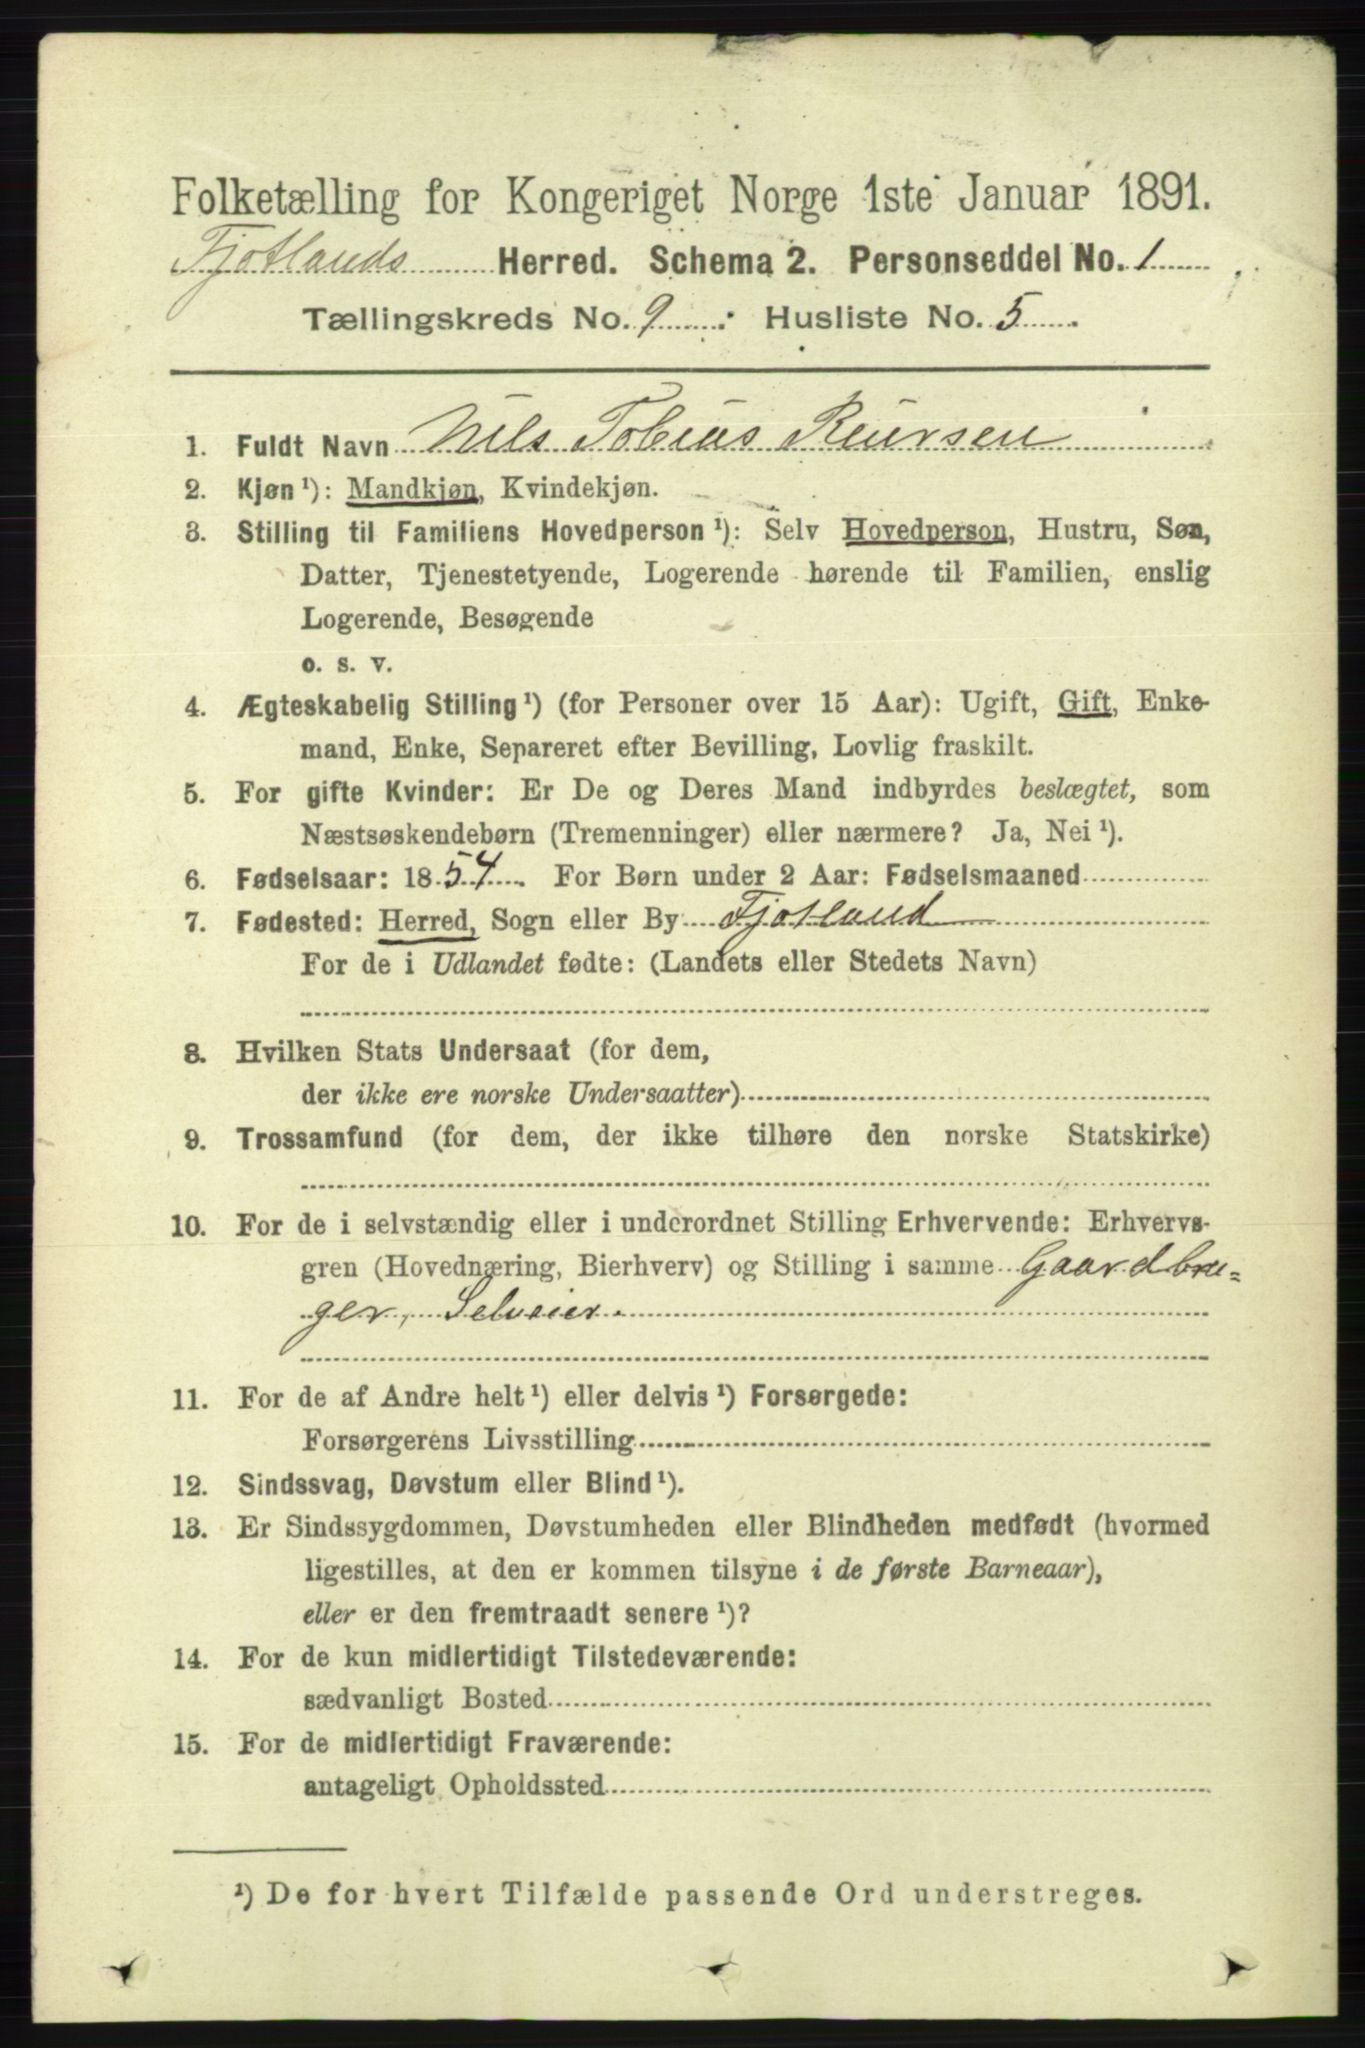 Folketælling for Kongeriget Norge 1ste Januar 1891.
Fjotlands Herred. Schema 2. Personseddel No. 1
Tællingskreds No. 9 : Husliste No. 5
1. Fuldt Navn Nils Tobias Reiersen
2. Kjøn ¹): Mandkjøn, Kvindekjøn.
3. Stilling til Familiens Hovedperson ¹): Selv Hovedperson, Hustru, Søn,
Datter, Tjenestetyende, Logerende hørende til Familien, enslig
Logerende, Besøgende
o. s. v.
4. Ægteskabelig Stilling ¹) (for Personer over 15 Aar): Ugift, Gift, Enke-
mand, Enke, Separeret efter Bevilling, Lovlig fraskilt.
5. For gifte Kvinder: Er De og Deres Mand indbyrdes beslægtet, som
Næstsøskendebørn (Tremenninger) eller nærmere? Ja, Nei ¹).
6. Fødselsaar: 1854. For Børn under 2 Aar: Fødselsmaaned
7. Fødested: Herred, Sogn eller By Fjotland
For de i Udlandet fødte: (Landets eller Stedets Navn)
8. Hvilken Stats Undersaat (for dem,
der ikke ere norske Undersaatter)
9. Trossamfund (for dem, der ikke tilhøre den norske Statskirke)
10. For de i selvstændig eller i underordnet Stilling Erhvervende: Erhvervs-
gren (Hovednæring, Bierhverv) og Stilling i samme Gaardbru=
ger, Selveier.
11. For de af Andre helt ¹) eller delvis ¹) Forsørgede:
Forsørgerens Livsstilling
12. Sindssvag, Døvstum eller Blind ¹).
13. Er Sindssygdommen, Døvstumheden eller Blindheden medfødt (hvormed
ligestilles, at den er kommen tilsyne i de første Barneaar),
eller er den fremtraadt senere ¹)?
14. For de kun midlertidigt Tilstedeværende:
sædvanligt Bosted
15. For de midlertidigt Fraværende:
antageligt Opholdssted
¹) De for hvert Tilfælde passende Ord understreges.